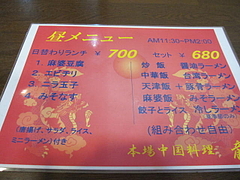 昼メニュー
AM11:30~PM2:00
日替わりランチ ¥700
1. 麻婆豆腐
2. エビチリ
3. ニラ玉子
4. みそなす
(唐揚げ、サラダ、ライス、
ミニラーメン)付き
セット ¥680
炒飯 醤油ラーメン
中華飯 台湾ラーメン
天津飯 + 豚骨ラーメン
麻婆飯 みそラーメン
餃子とライス 冷しラーメン
(組み合わせ自由)
本場中国料理